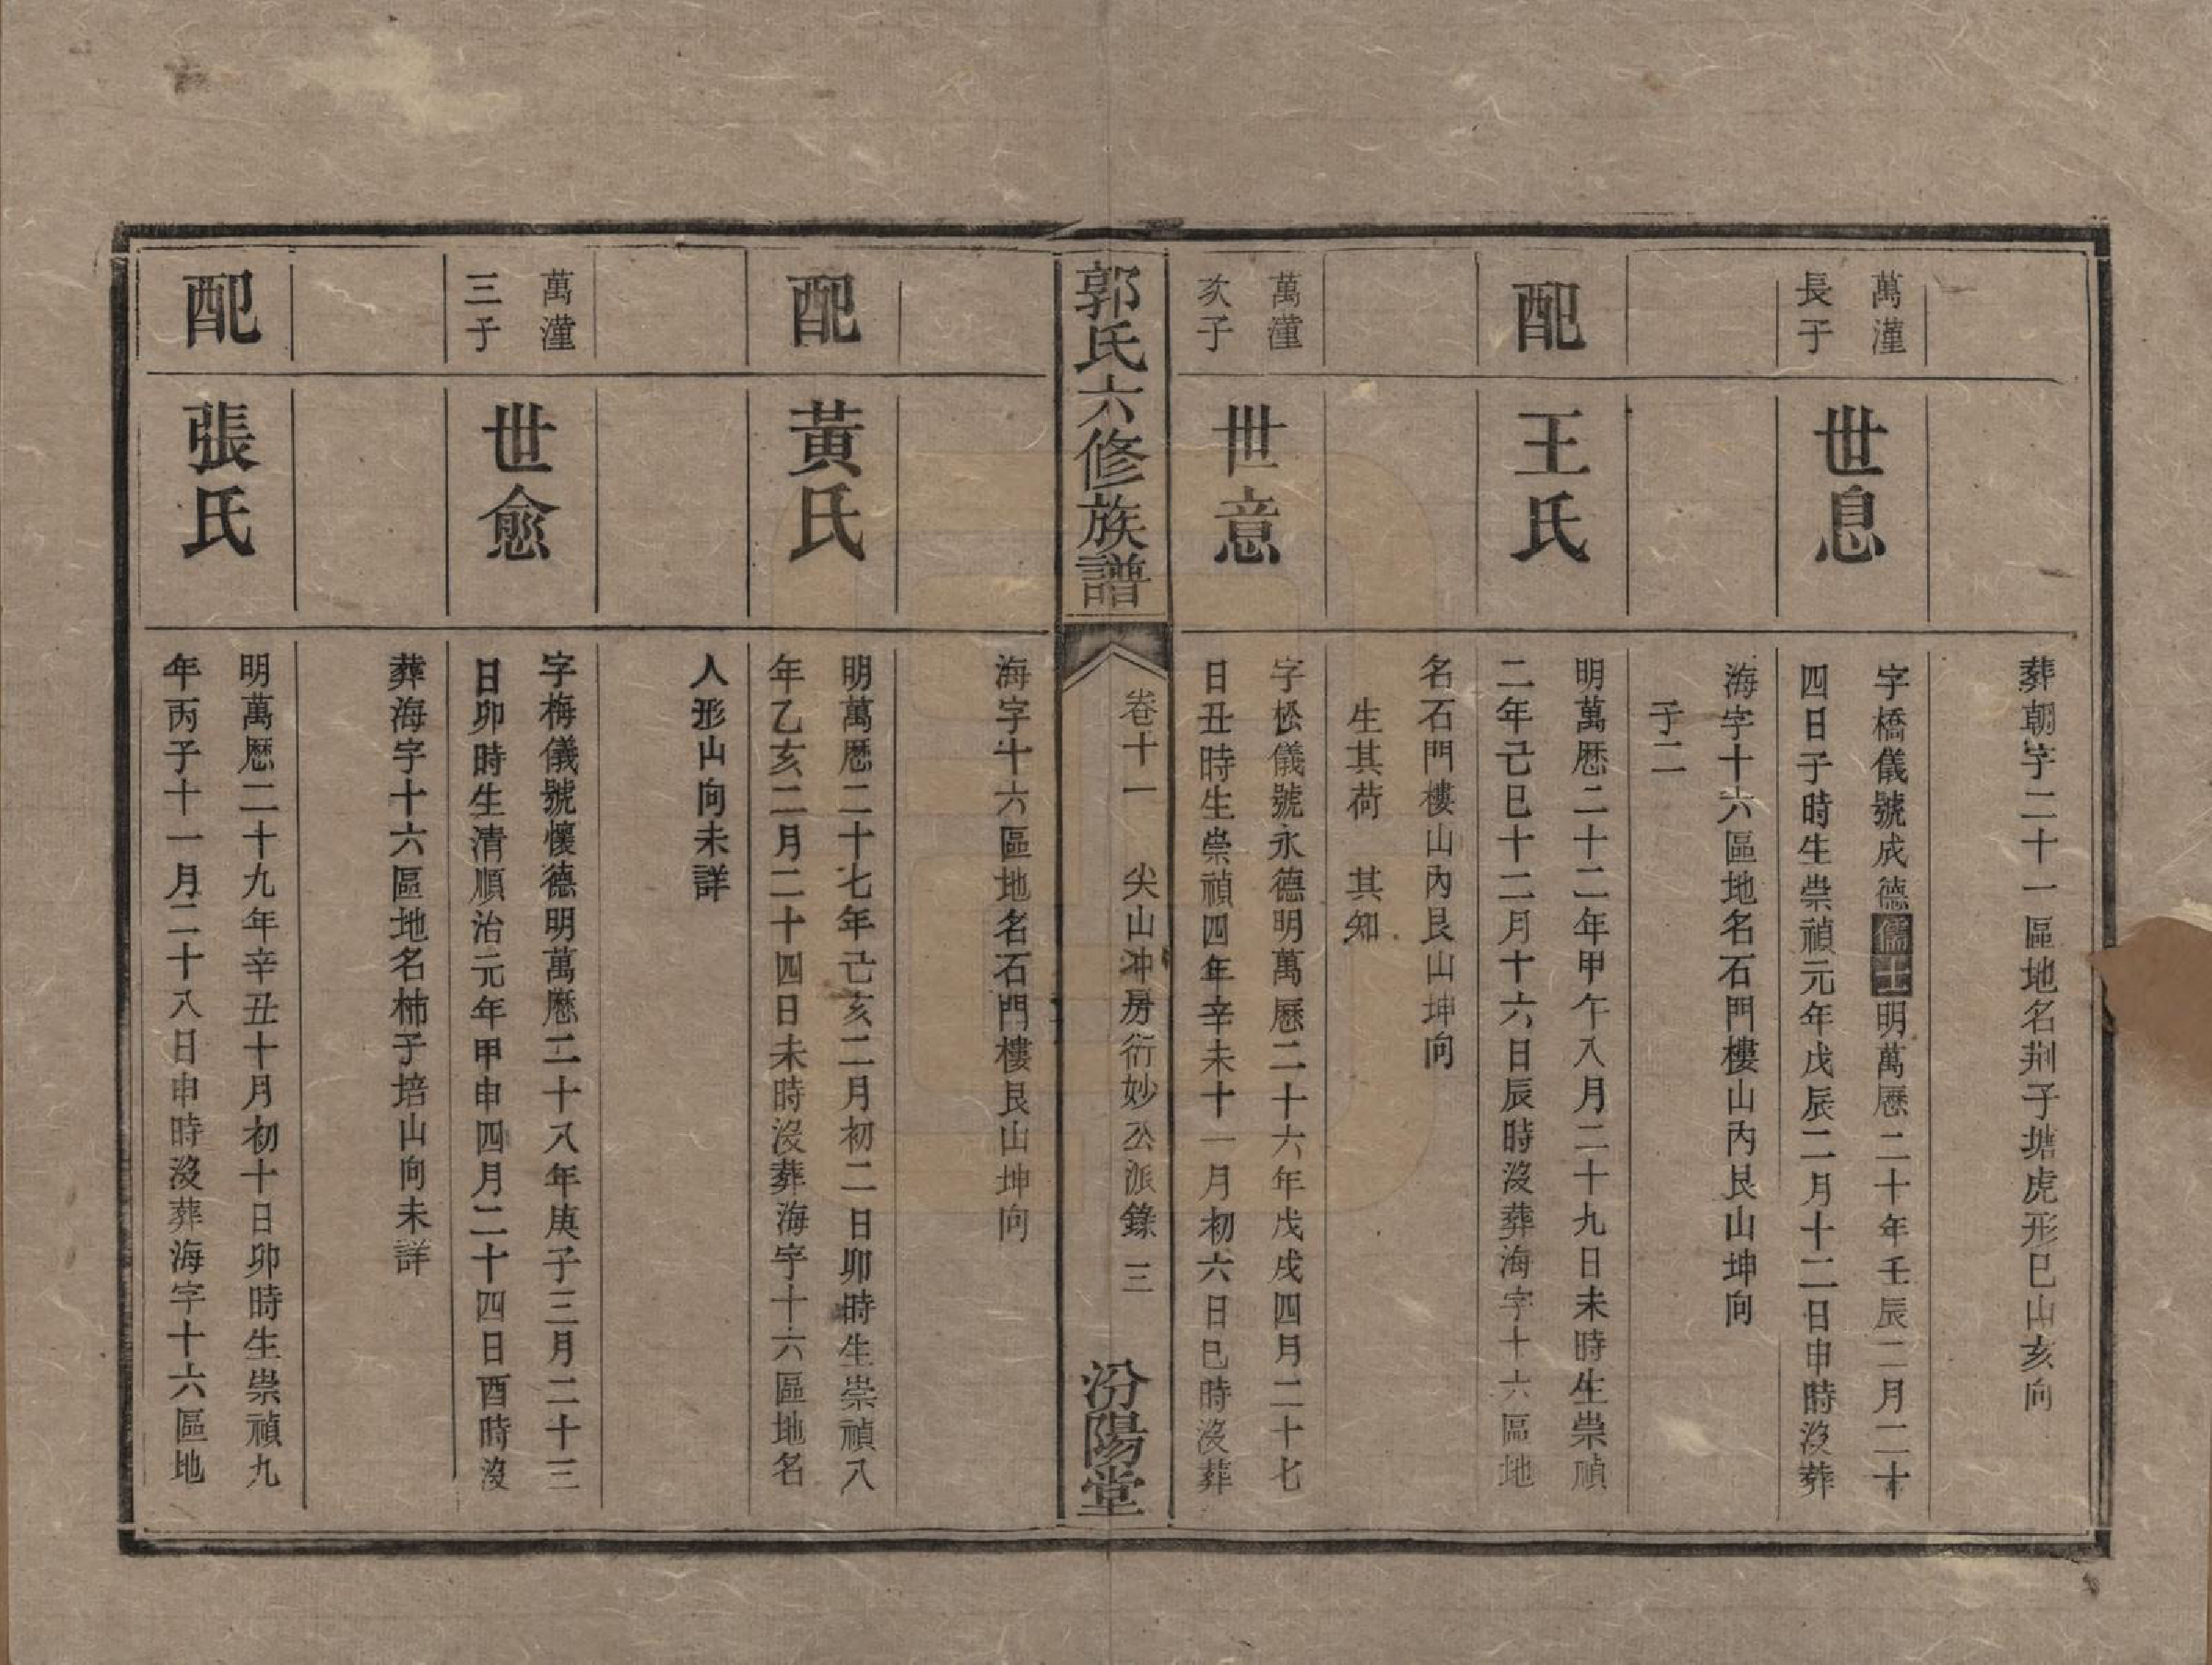 葬朝字二十一區地名荆子塘虎形巳山亥向
萬瀍
長子
世息
字橋儀號成德儒士明萬歷二十年壬辰二月二十
四日子時生崇禎元年戊辰二月十二日申時沒葬
海字十六區地名石門樓山內艮山坤向
子二
配
王氏
明萬歷二十二年甲午八月二十九日未時生崇禎
二年己巳十二月十六日辰時沒葬海字十六區地
名石門樓山內艮山坤向
生其荷 其知
萬瀍
次子
世意
字松儀號永德明萬歷二十六年戊戌四月二十七
日丑時生崇禎四年辛未十一月初六日巳時沒葬
郭氏六修族譜
卷十一 尖山冲房衍妙公派錄 三
汾陽堂
海字十六區地名石門樓艮山坤向
配
黃氏
明萬歷二十七年己亥二月初二日卯時生崇禎八
年乙亥二月二十四日未時沒葬海字十六區地名
人形山向未詳
萬瀍
三子
世愈
字梅儀號懷德明萬歷二十八年庚子三月二十三
日卯時生清順治元年甲申四月二十四日酉時沒
葬海字十六區地名柿子培山向未詳
配
張氏
明萬歷二十九年辛丑十月初十日卯時生崇禎九
年丙子十一月二十八日申時沒葬海字十六區地